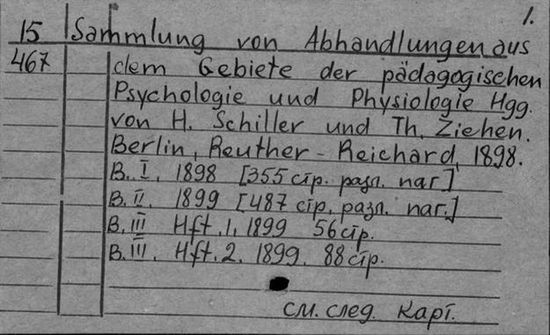 1.
15 Sammlung von Abhandlungen aus
467 dem Gebiete der pädagogischen
Psychologie und Physiologie Hgg.
von H. Schiller und Th. Ziehen.
Berlin, Reuther - Reichard, 1898.
B. I. 1898 [355 стр. разл. паг.]
B. II. 1899 [487 стр. разл. паг.]
B. III Hft. 1. 1899 56 стр.
B. III. Hft. 2. 1899. 88 стр.
см. след. карт.